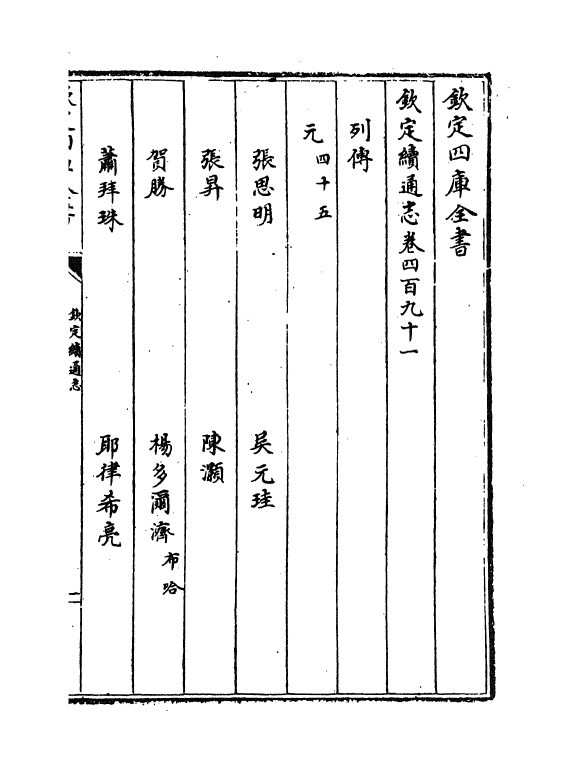 欽定四庫全書
欽定續通志卷四百九十一
列傳
元四十五
張思明 吳元珪
張昇 陳灝
賀勝 楊多爾濟布哈
蕭拜珠 耶律希亮
欽定續通志
一